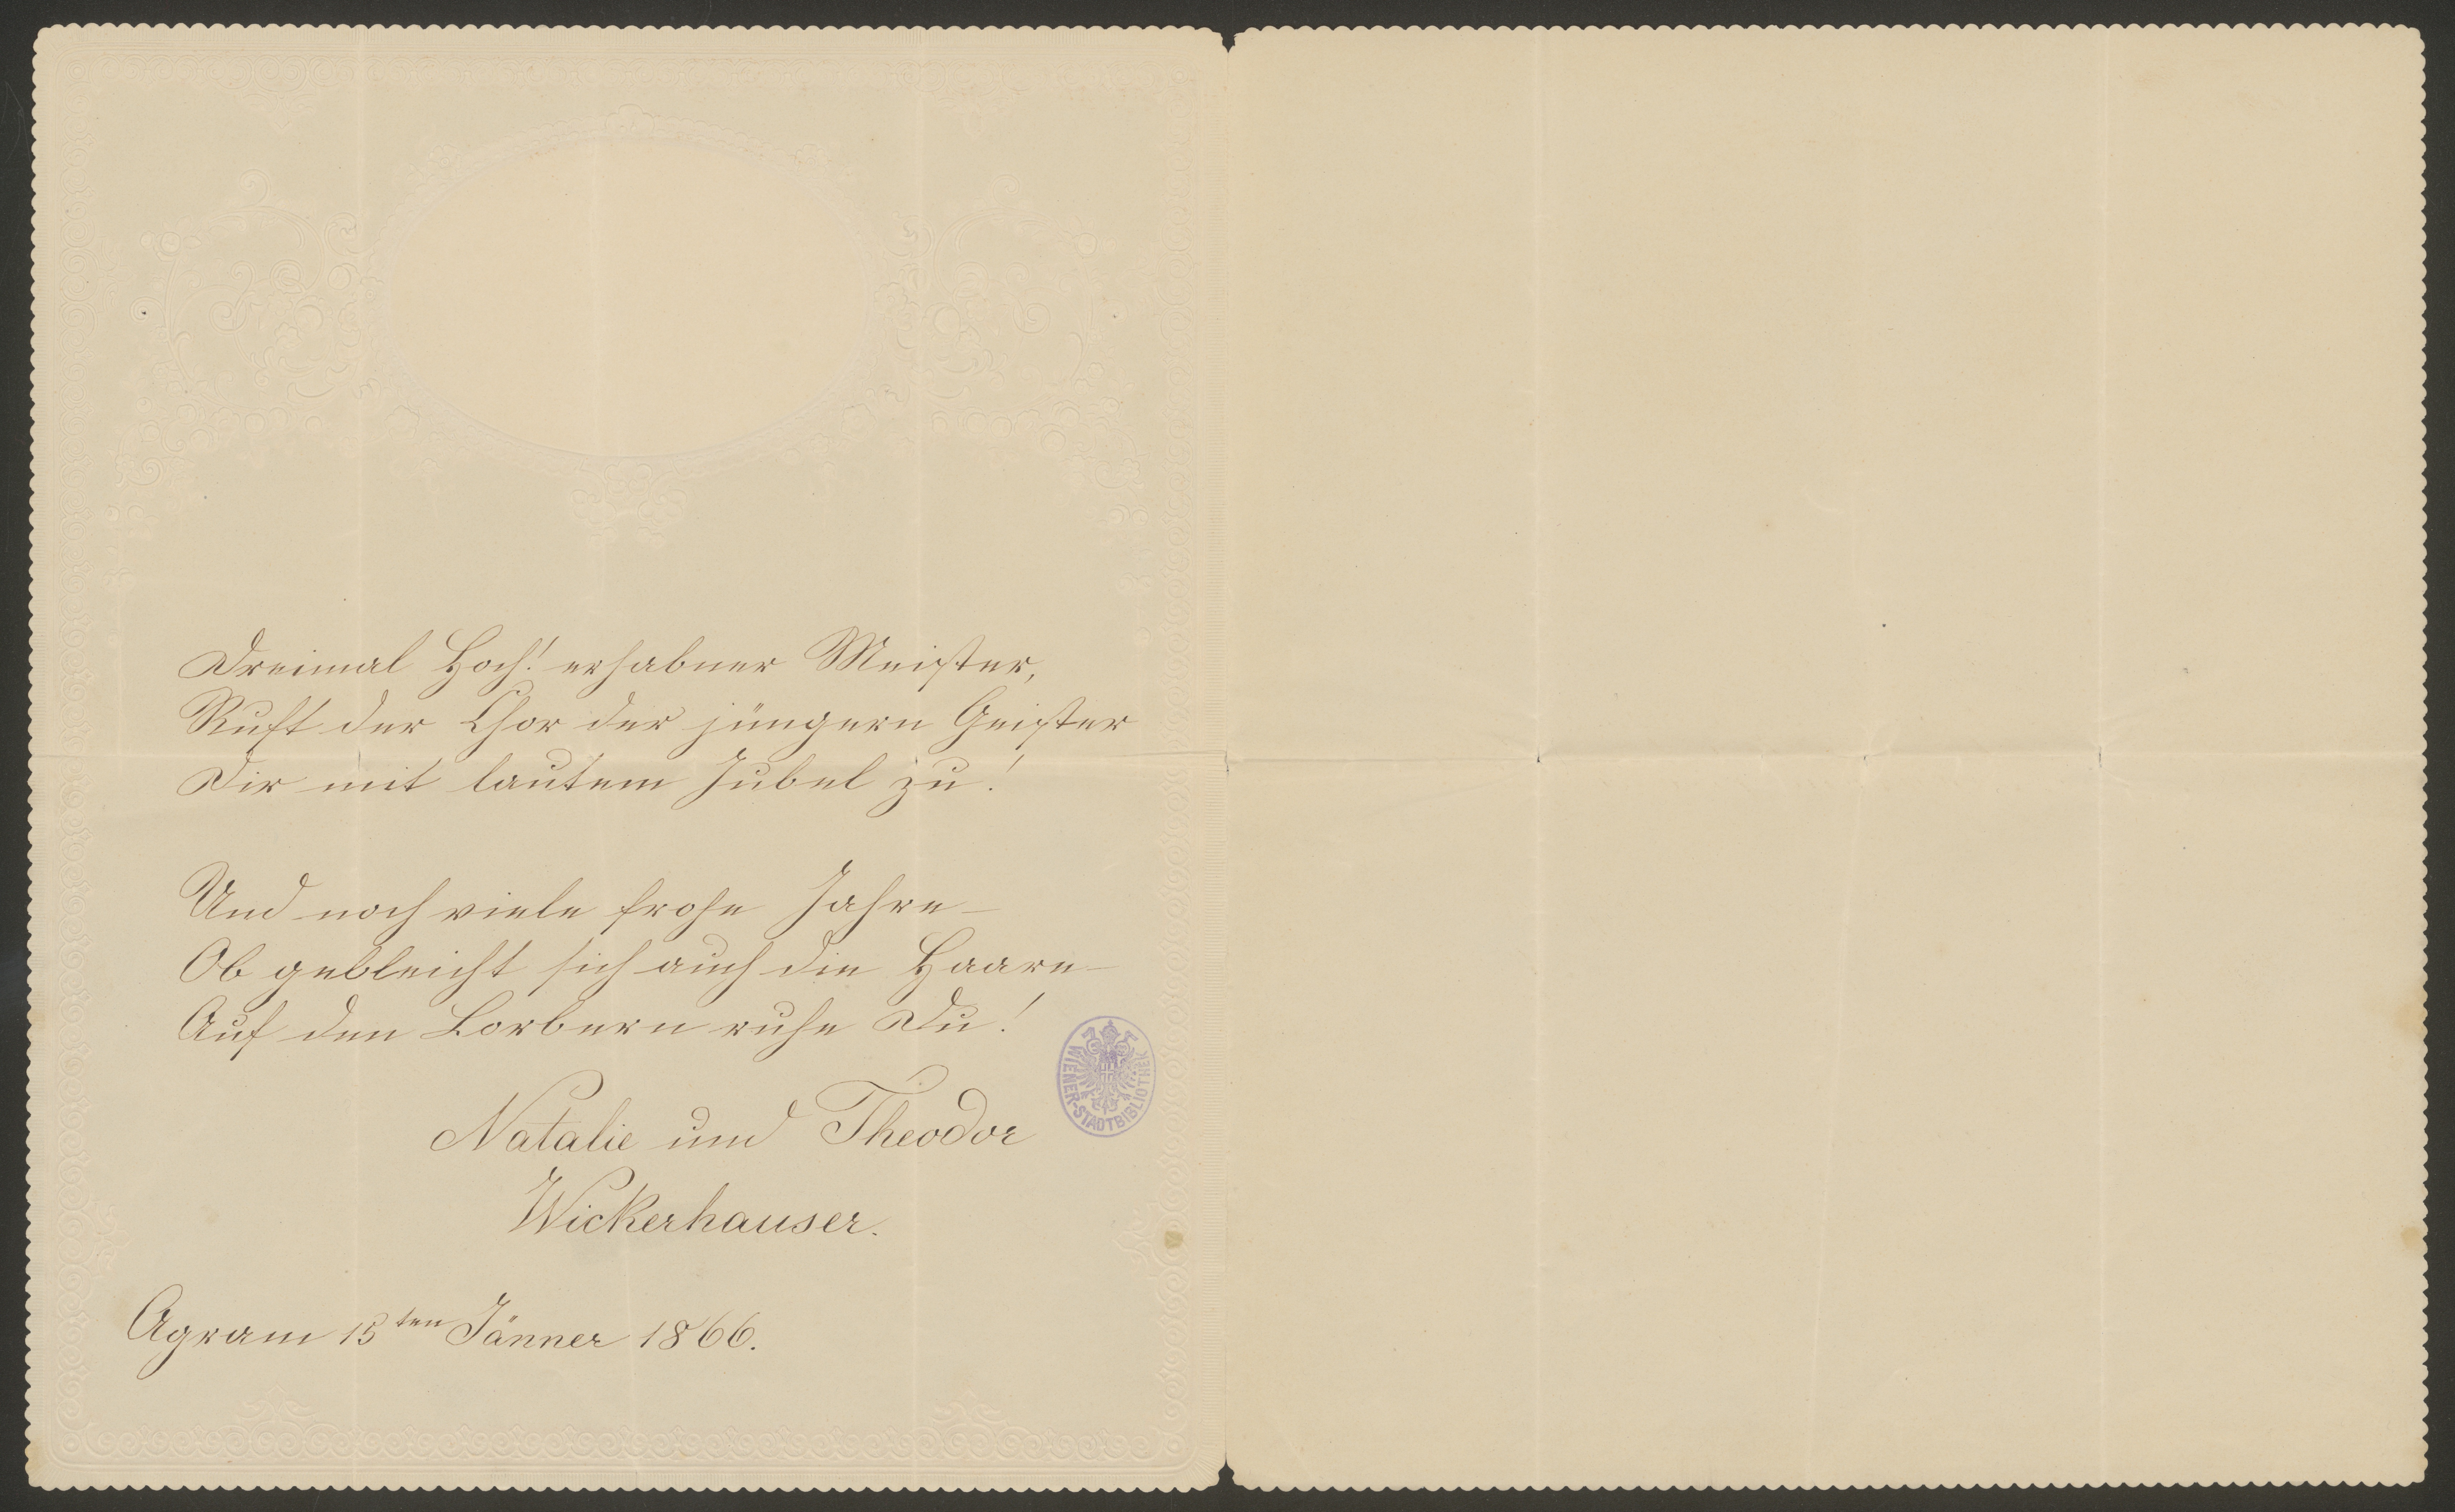 Dreimal Hoch! erhabner Meister,
Ruft der Chor der jüngern Geister
Dir mit lautem Jubel zu!
Und noch viele frohe Jahre –
Ob gebleicht sich auch die Haare –
Auf den Lorbern ruhe Du!
Natalie und Theodor
Wickerhauser.
Agram 15ten Jänner 1866.
WIENER-STADTBIBLIOTHEK